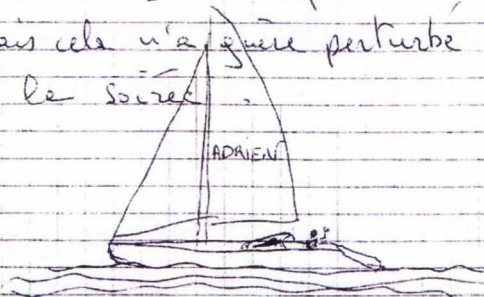 ais cela n'a guère perturbé
la soirée.
ADRIEN